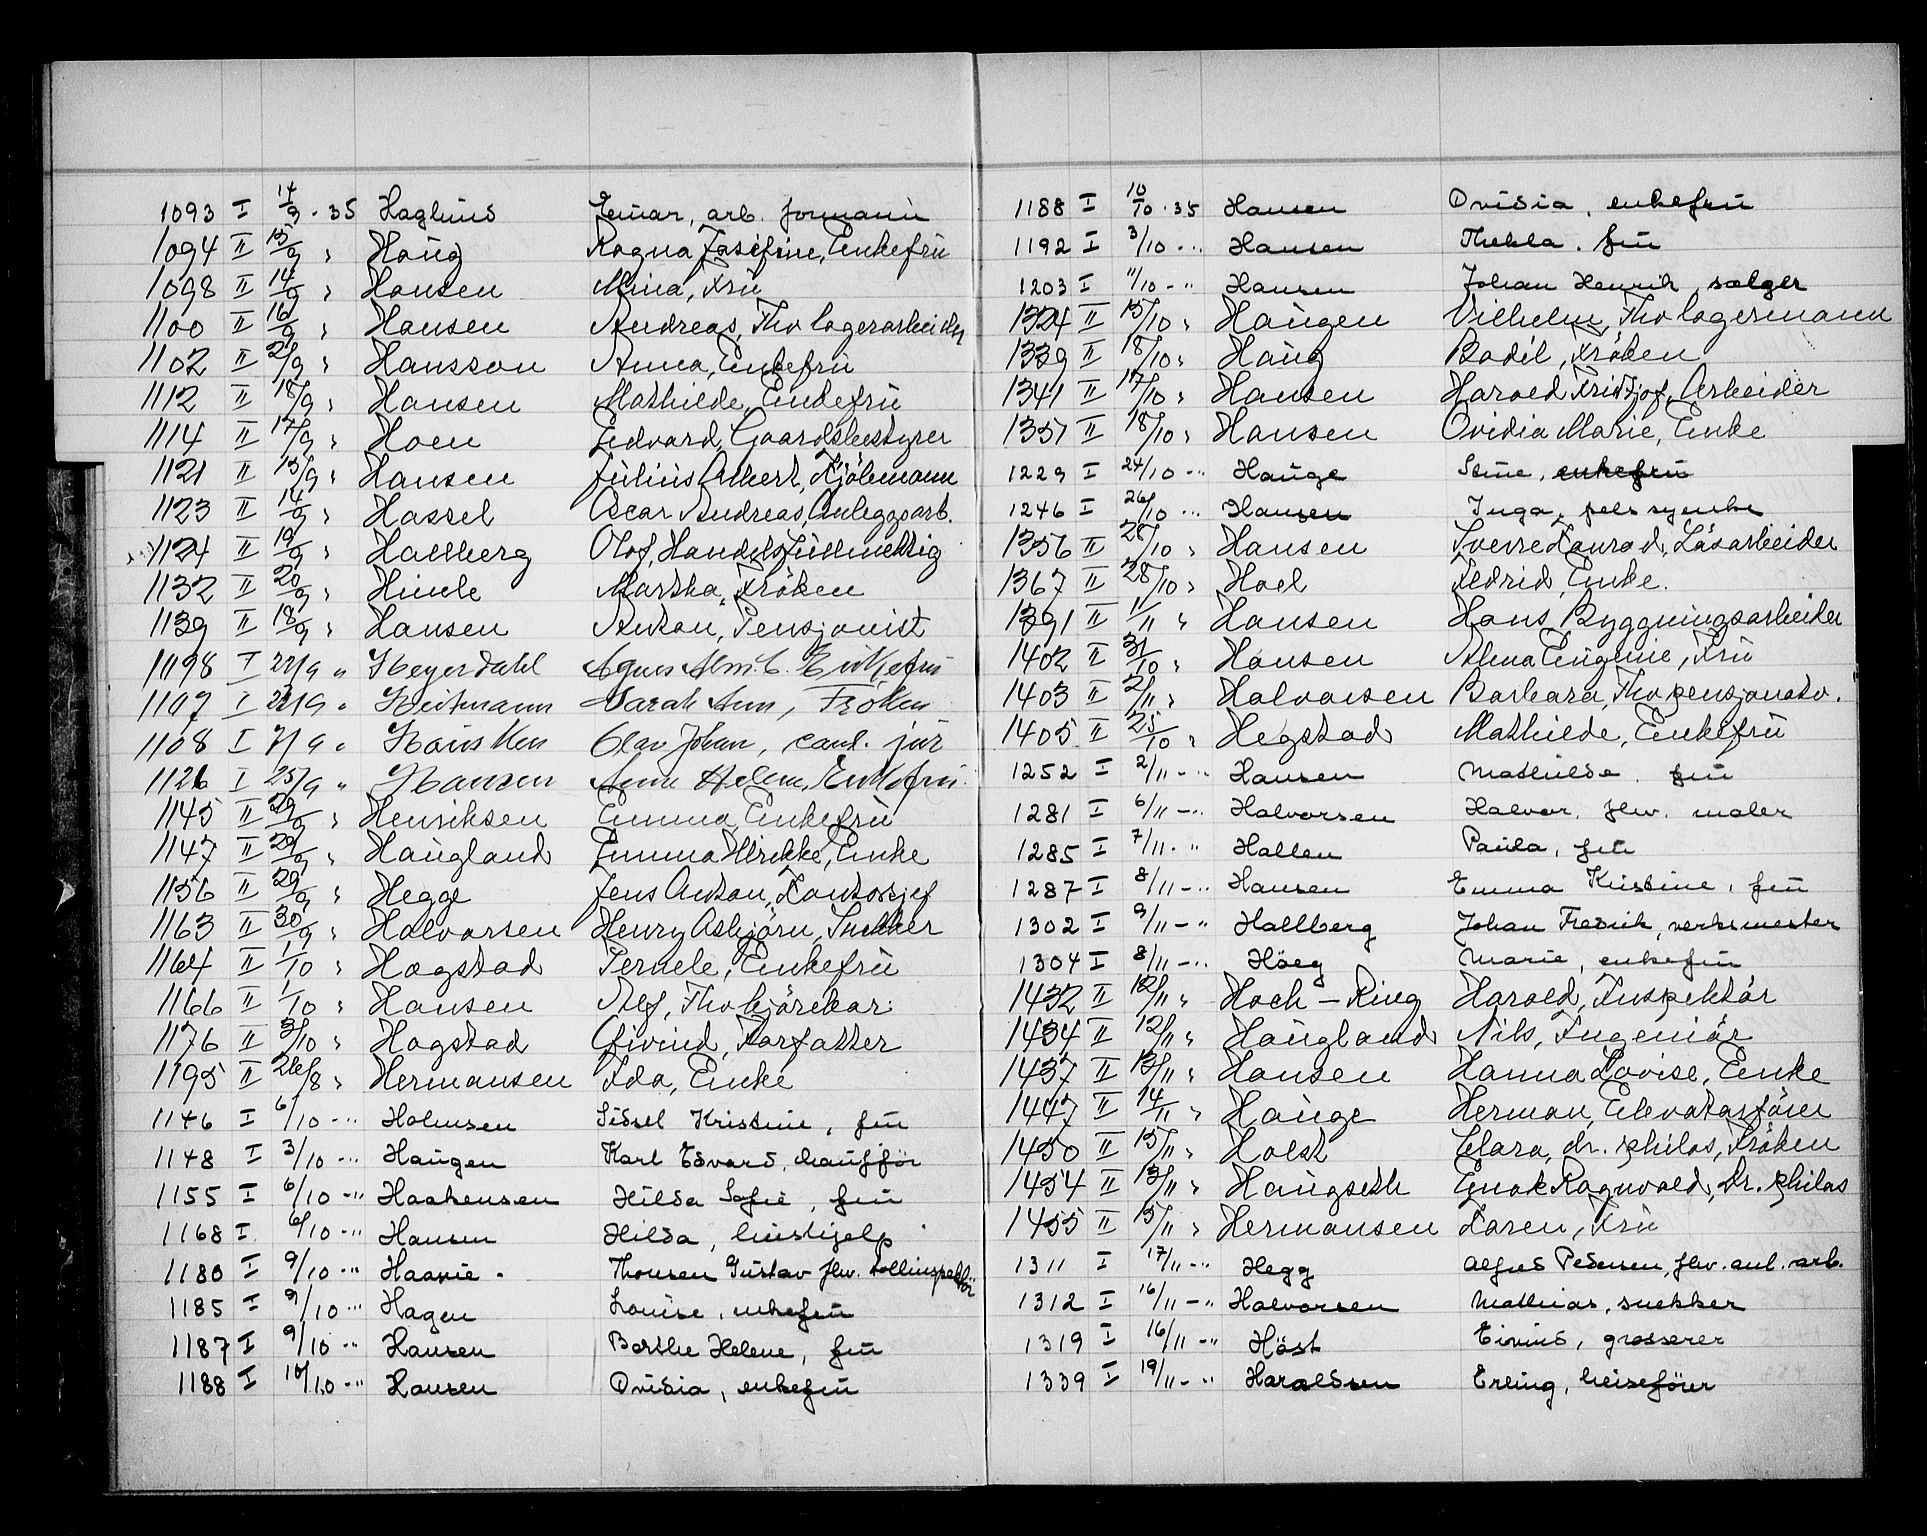 1093 I 14/9 - 35 Haglund Einar, arb. formann
1094 II 13/9 " Haug Ragna Josefine, Enkefru
1098 II 14/9 " Hansen Mina, Fru
1100 II 16/9 " Hansen Andreas, Fhv lagerarbeider
1102 II 21/9 " Hansson Anna, Enkefru
1112 II 18/9 " Hansen Mathilde, Enkefru
1114 II 17/9 " Hoen Edvard, Gaardsbestyrer
1121 II 13/9 " Hansen Julius Albert, Kjölemann
1123 II 14/9 " Hassel Oscar Andreas, Anleggsarb.
1124 II 19/9 " Hallberg Olof, Handelsfullmektig
1132 II 20/9 " Martha, Fröken
1139 II 18/9 " Hansen Anton, Pensjonist
1098 I 22/9 " Heyerdahl Agnes Enkefru
1107 I 21/9 " Heitmann Sarah Ann, Fröken
1108 I 7/9 " Hausken Olav Johan, cand. jur
1126 I 25/9 " Hansen Anne Helene, Enkefru
1145 II 29/9 " Henriksen Emma, Enkefru
1147 II 29/9 " Haugland Emma Ulrikke, Enke
1156 II 29/9 " Hegge Jens Anton, Kontorsjef
1163 II 30/9 " Halvorsen Henry Asbjörn, Snekker
1164 II 1/10 " Hagstad Pernele, Enkefru
1166 II 1/10 " Hansen Alf, Fhv kjörekar.
1176 II 3/10 " Hagstad Eivind, Forfatter
1195 II 26/8 " Hermansen Ida, Enke
1146 I 6/10 - " Holmsen Sissel Kristine, fru
1148 I 3/10 - " Haugen Karl Edvard, chaufför
1155 I 6/10 - " Haakensen Hilda Sofie, fru
1168 I 6/10 - " Hansen Hilda, hushjelp
1180 I 9/10 - " Haavie - Thomsen Gustav fhv. tollinspektör
1185 I 9/10 - " Hagen Louise, enkefru
1187 I 9/10 - " Hansen Berthe Helene, fru
1188 I 10/10 - " Hansen Ovidia, enkefru
1188 I 10/10 - 35 Hansen Ovidia, enkefru
1192 I 3/10 - " Hansen Thekla, fru
1203 I 11/10 - " Hansen Johan Henrik, sælger
1324 II 15/10 " Haugen Vilhelm, Fhv lagermann
1339 II 18/10 " Haug Bodil, Fröken
1341 II 17/10 " Hansen Harald Fridtjof, Arbeider
1351 II 18/10 " Hansen Ovidia Marie, Enke
1229 I 24/10 - " Hauge Stine, enkefru
1246 I 26/10 - " Hansen Inga, pelssyerske
1356 II 28/10 " Hansen Sverre Konrad, Låsarbeider
1367 II 28/10 " Hoel Fredrid, Enke.
1391 II 1/11 " Hansen Hans, Byggningsarbeider
1402 II 31/10 " Hansen Alma Eugenie, Fru
1403 II 2/11 " Halvorsen Barbara, Fhv pensjonatv.
1405 II 25/10 " Hegstad Mathilde, Enkefru
1252 I 2/11 - " Hansen Mathilde, fru
1281 I 6/11 - " Halvorsen Halvor, fhv. maler
1285 I 7/11 - " Hallen Paula, fru
1287 I 8/11 - " Hansen Emma Kristine, fru
1302 I 9/11 - " Hallberg Johan Fredrik, verksmester
1304 I 8/11 - " Höeg Marie, enkefru
1432 II 12/11 " Hoch - Ring Harald, Inspektör
1434 II 12/11 " Haugland Nils, Ingeniör
1437 II 13/11 " Hansen Hanna Lovise, Enke
1447 II 14/11 " Hauge Herman, Elevatorförer
1450 II 15/11 " Holst Clara, dr. philos, Fröken
1454 II 13/11 " Haugseth Enok Ragnvald, Dr. philos
1455 II 15/11 " Hermansen Karen, Fru
1311 I 17/11 - " Hegg Alfred Pedersen, fhv. anl. arb.
1312 I 16/11 - " Halvorsen Mathias, snekker
1319 I 16/11 - " Höst Eivind, grosserer
1339 I 19/11 - " Haraldsen Erling, heiseförer